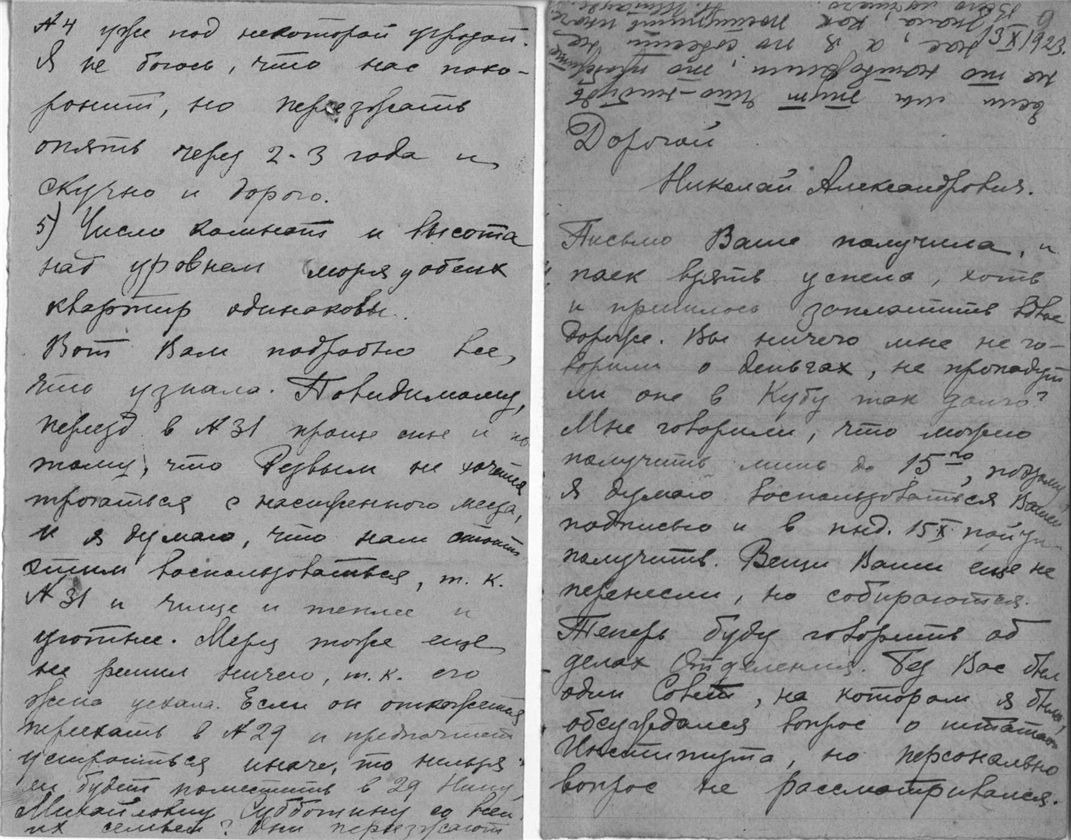 № 4 уже под некоторой угрозой.
Я не боюсь, что нас похо-
ронит, но переезжать
опять через 2-3 года и
скучно и дорого.
5) Число комнат и высота
над уровнем моря у обеих
квартир одинаковы.
Вот Вам подробно все,
что узнала. Повидимому,
переезд в № 31 проще еще и по
тому, что Резвым не хочется
трогаться с насиженного места,
и я думаю, что нам стоит
этим воспользоваться, т.к.
№ 31 и чище и теплее и
уютнее. Мерц тоже еще
не решил ничего, т.к. его
жена уехала. Если он откажется
переехать в № 29 и предпочтет
устроиться иначе, то нельзя
ли будет поместить в 29 Нину
Михайловну Субботину со всей
их семьей? Они переезжают
13/X 1923.
Если мы тут что-нибудь
не то натворим, то простите
нас, а я по совести не
знала, как поступить иначе
Всего лучшего.
Дорогой
Николай Александрович.
Письмо Ваше получила, и
паек взять успела, хоть
и пришлось заплатить вдвое
дороже. Вы ничего мне не го-
ворили о деньгах, не пропадут
ли оне в Кубу так долго?
Мне говорили, что можно
получить лишь до 15го, поэтому
я думаю воспользоваться Вашей
подписью и в пнд. 15 X пойду
получить. Вещи Ваши еще не
перенесли, но собираются.
Теперь буду говорить об
делах Отделения. Без Вас был
один Совет, на котором я была,
обсуждался вопрос о штатах
Института, но персонально
вопрос не рассматривался.